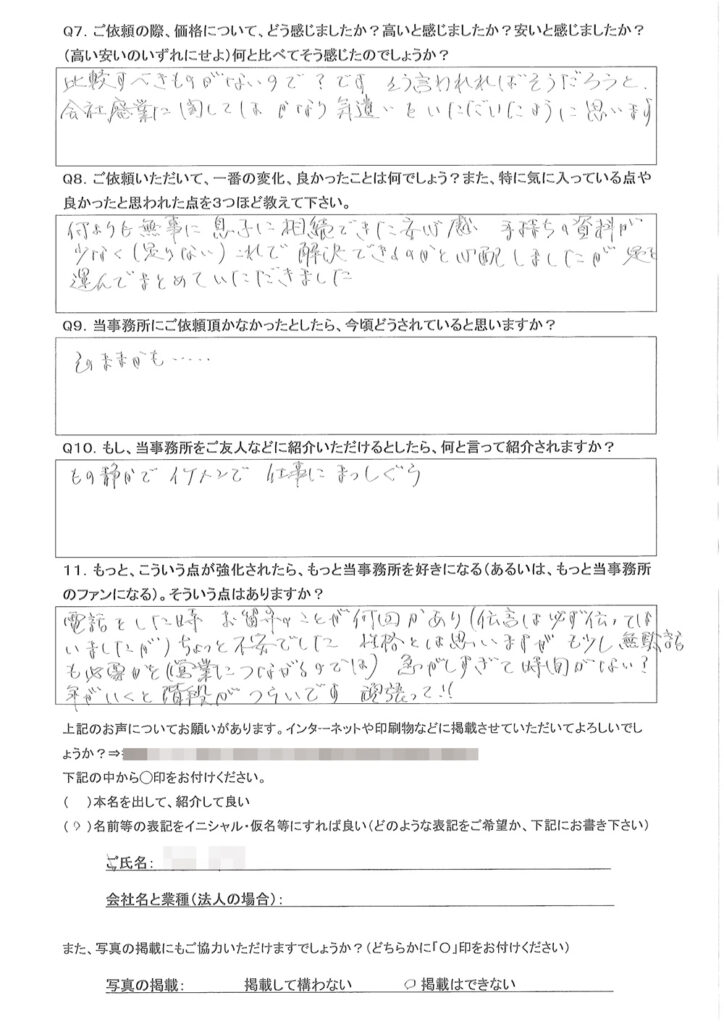 Q7. ご依頼の際、価格について、どう感じましたか?高いと感じましたか?安いと感じましたか?
(高い安いのいずれにせよ)何と比べてそう感じたのでしょうか?
比較すべきものがないので?です そう言われればそうだろうと、
会社廃業に関してはかなり気遣いをいただいたように思います
Q8. ご依頼いただいて、一番の変化、良かったことは何でしょう?また、特に気に入っている点や
良かったと思われた点を3つほど教えて下さい。
何よりも無事に息子に相続できた安心感 手持ちの資料が
少なく(足りない)これで解決できるのかと心配しましたが 足を
運んでまとめていただきました
Q9. 当事務所にご依頼頂かなかったとしたら、今頃どうされていると思いますか?
そのままかも……
Q10. もし、当事務所をご友人などに紹介いただけるとしたら、何と言って紹介されますか?
もの静かで イケメンで 仕事にまっしぐら
11. もっと、こういう点が強化されたら、もっと当事務所を好きになる(あるいは、もっと当事務所
のファンになる)。そういう点はありますか?
電話をした時 お留守のことが何回かあり(伝言は必ず伝っては
いましたが)ちょっと不安でした 性格とは思いますが もう少し無駄話
も必要かと(営業につながるのでは) 急がしすぎて時間がない?
年がいくと階段がつらいです 頑張って!!
上記のお声についてお願いがあります。インターネットや印刷物などに掲載させていただいてよろしいでし
ょうか?⇒
下記の中から○印をお付けください。
( )本名を出して、紹介して良い
(○)名前等の表記をイニシャル・仮名等にすれば良い(どのような表記をご希望か、下記にお書き下さい)
ご氏名:
会社名と業種(法人の場合):
また、写真の掲載にもご協力いただけますでしょうか?(どちらかに「○」印をお付けください)
写真の掲載: 掲載して構わない ○ 掲載はできない